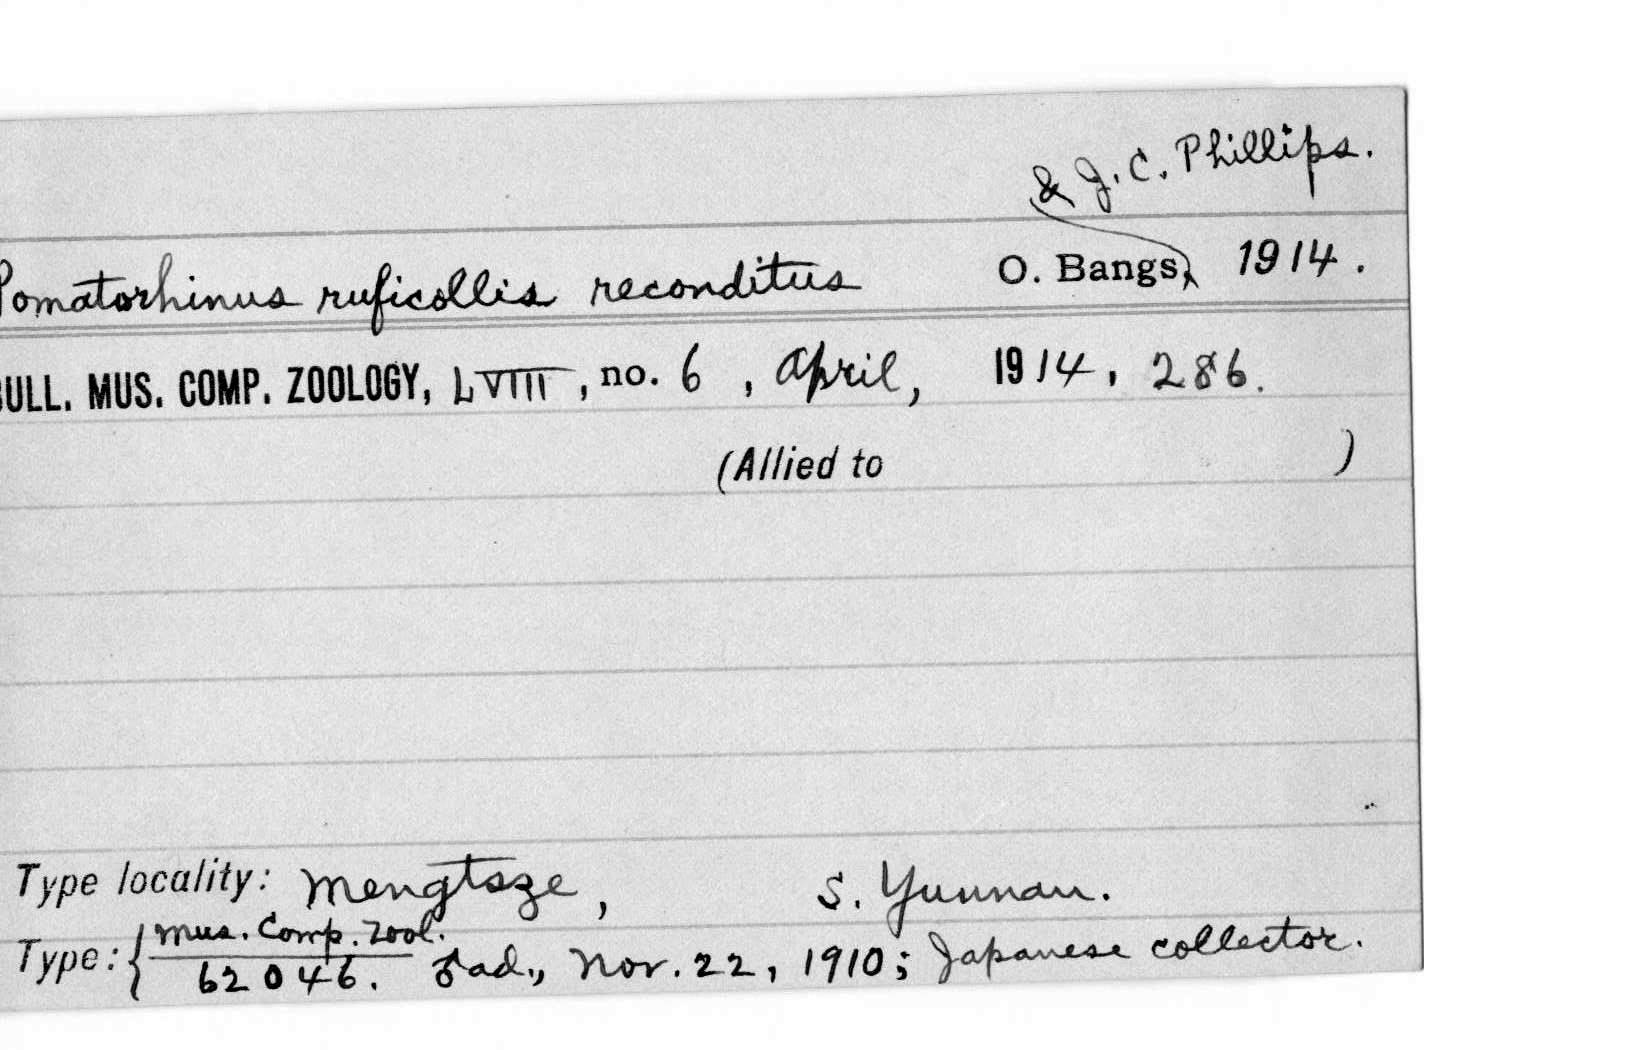 & J. C. Phillips.
Pomatorhinus ruficollis reconditus O. Bangs, 1914.
BULL. MUS. COMP. ZOOLOGY, LVIII, no. 6, April, 1914, 286.
(Allied to )
Type locality: Mengtsze, S. Yunnan.
Type: { Mus. Comp. Zool.
62046. ♂ ad., Nov. 22, 1910; Japanese collector.